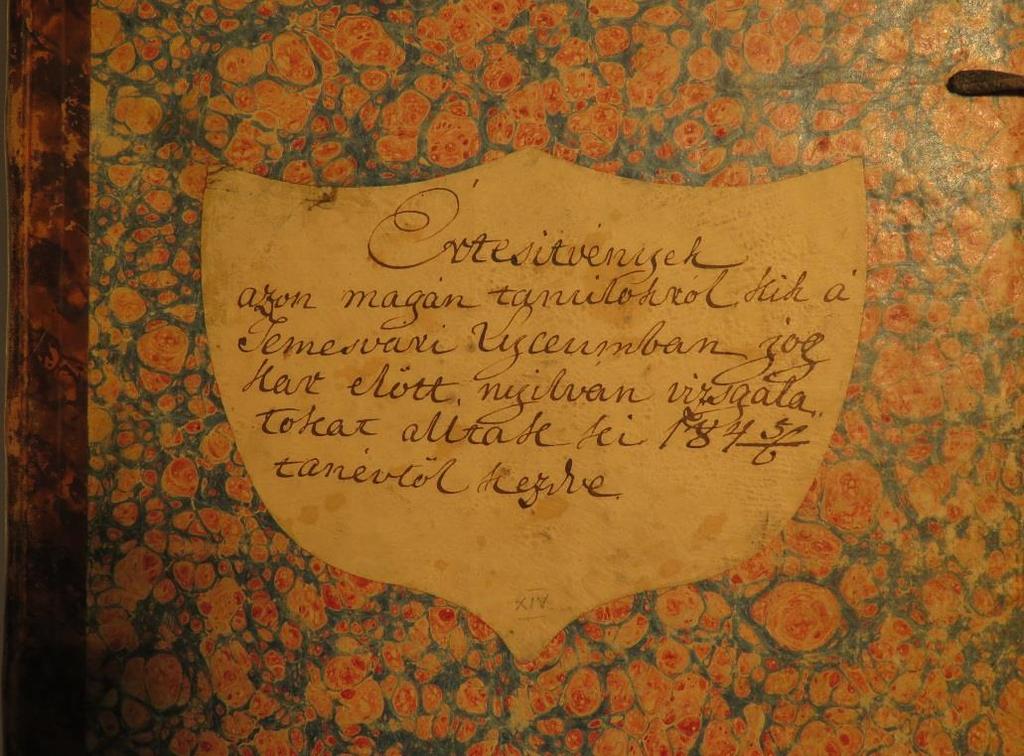 Értesitvények
azon magán tanulokrol kik á
Temesvári Lyceumban jog
kar előtt, nyilván vizsgála„
tokat álltak ki 184 5/6
tanévtől kezdve
XIV